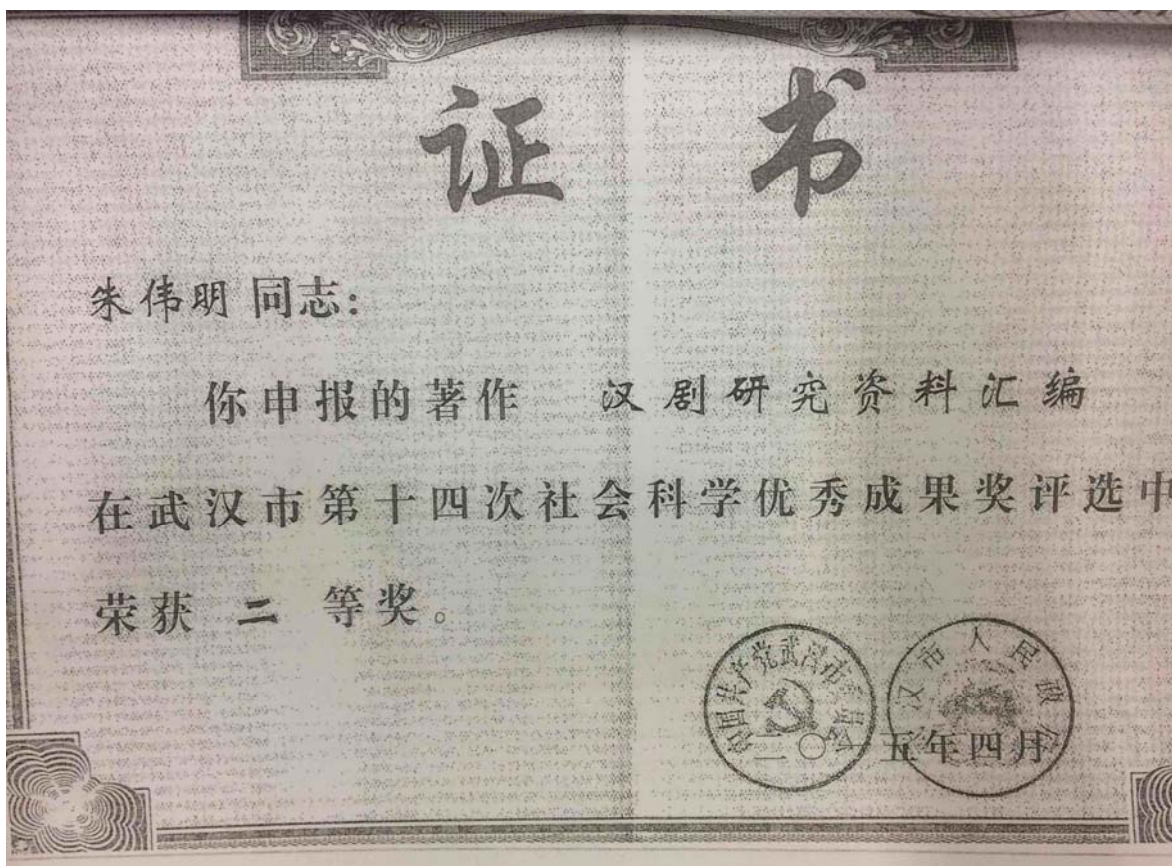 证 书
朱伟明 同志:
你申报的著作 汉剧研究资料汇编
在武汉市第十四次社会科学优秀成果奖评选中
荣获 二 等奖。
中国共产党武汉市委员会
汉市人民政
二〇一五年四月